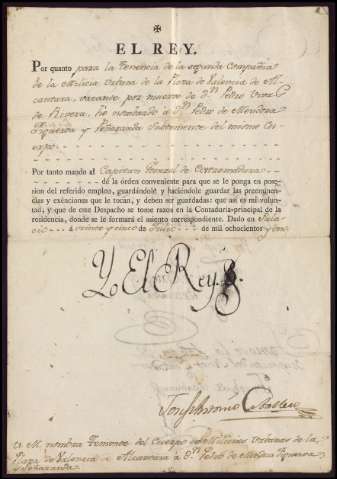 EL REY.
Por quanto para la Tenencia de la segunda Compañia
de la Milicia Urbana de la Plaza de Valencia de Al
cantara, vacante por muerte de Dn. Pedro
de Rivera, he nombrado a Dn. Pedro de Mendoza
Figueroa y Peñaranda Subteniente del mismo Cu
erpo.
Por tanto mando al Capitan General de Extremadura
dé la órden conveniente para que se le ponga en pose-
sion del referido empleo, guardándole y haciéndole guardar las preeminen-
cias y exênciones que le tocan, y deben ser guardadas: que así es mi volun-
tad; y que de este Despacho se tome razon en la Contaduría principal de la
residencia, donde se le formará el asiento correspondiente. Dado en Pala
cio á veinte y cinco de de mil ochocientos y
Yo El Rey
Joseph Antonio Caballero
V. M. nombra Teniente del Cuerpo de Milicias Urbanas de la
Plaza de Valencia de Alcantara á Dn. Pedro de Mendoza Figueroa
y Peñaranda